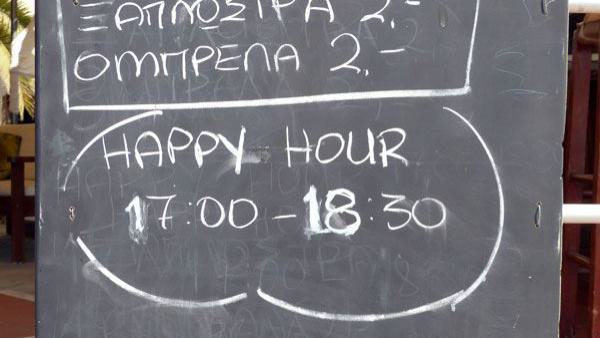 ΞΑΠΛΩΣΤΡΑ 2.-
ΟΜΠΡΕΛΑ 2.-
HAPPY HOUR
17:00 - 18:30